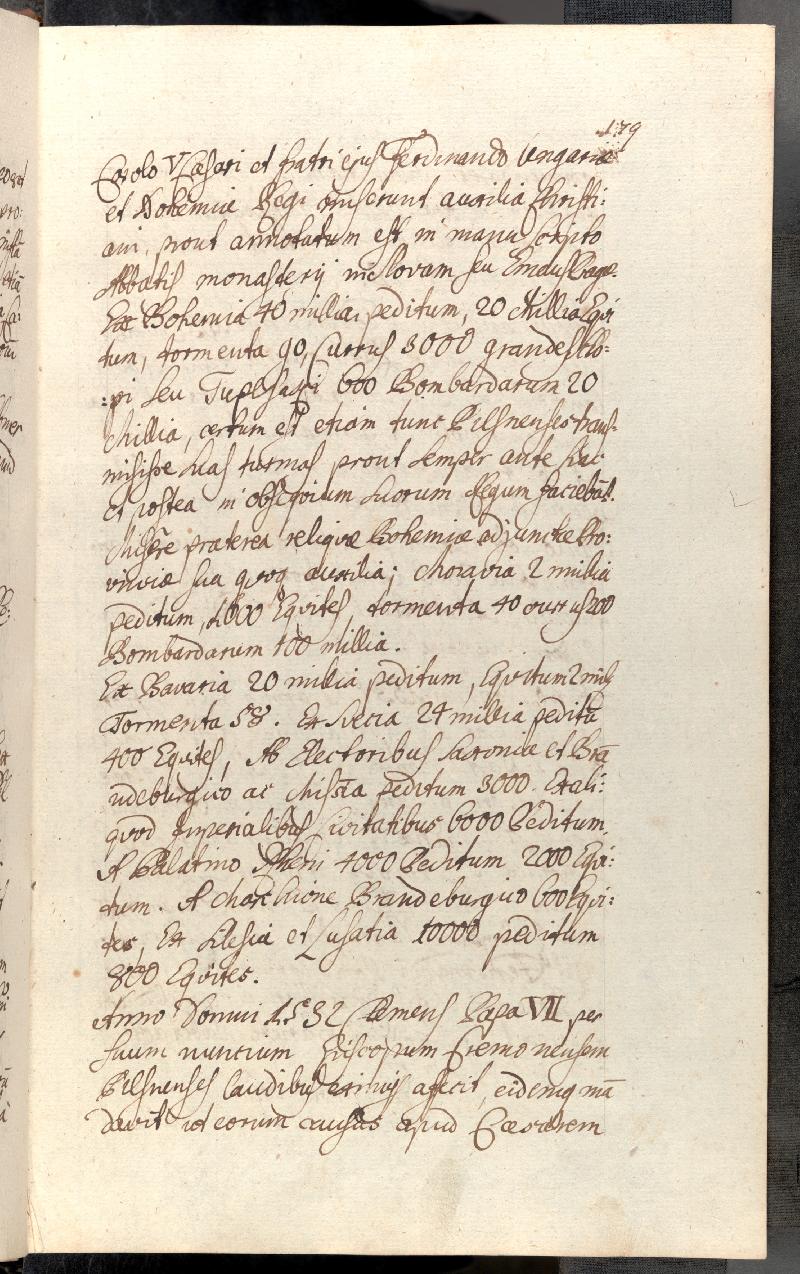 179
Carolo V Cæsari et fratri ejus Ferdinando Ungariæ
et Bohemiæ Regi miserunt auxilia Christi:
ani, prout annotatum est in manu scripto
Abbatis monasterij in Slovan seu Emaus Pragæ.
Ex Bohemia 40 millia peditum, 20 Millia Equi
tum, tormenta 90, Currus 3000 grandes sclo:
:pi seu 600 Bombardarum 20
Millia, certum est etiam tunc Pilsnenses trans:
misisse suas turmas prout semper ante hac
et postea in obsequium suorum Regum faciebāt.
Misēre præterea reliquæ Bohemiæ adjunctæ Pro:
vinciæ sua quoq auxilia; Moravia 2 millia
peditum, 1000 Equites, tormenta 40 currus 200
Bombardarum 100 millia.
Ex Bavaria 20 millia peditum, Equitum 2 mill
Tormenta 58. Ex Svecia 24 millia peditū
400 Equites, Ab Electoribus Saxoniæ et Bra
ndeburgico ac Misnia peditum 3000. Ex ali:
quod Imperialibus Civitatibus 6000 Peditum,
A Palatino Rheni 4000 Peditum 2000 Equi:
tum. A Marchione Brandeburgico 600 Equi:
tes, Ex Silesia et Lusatia 10000 peditum
800 Equites.
Anno Domini 1532 Clemens Papa VII per
suum nuncium Episcopum Cremonensem
Pilsnenses laudibus eximijs affecit, eidemq mā
davit ut eorum causas apud Cæsarem